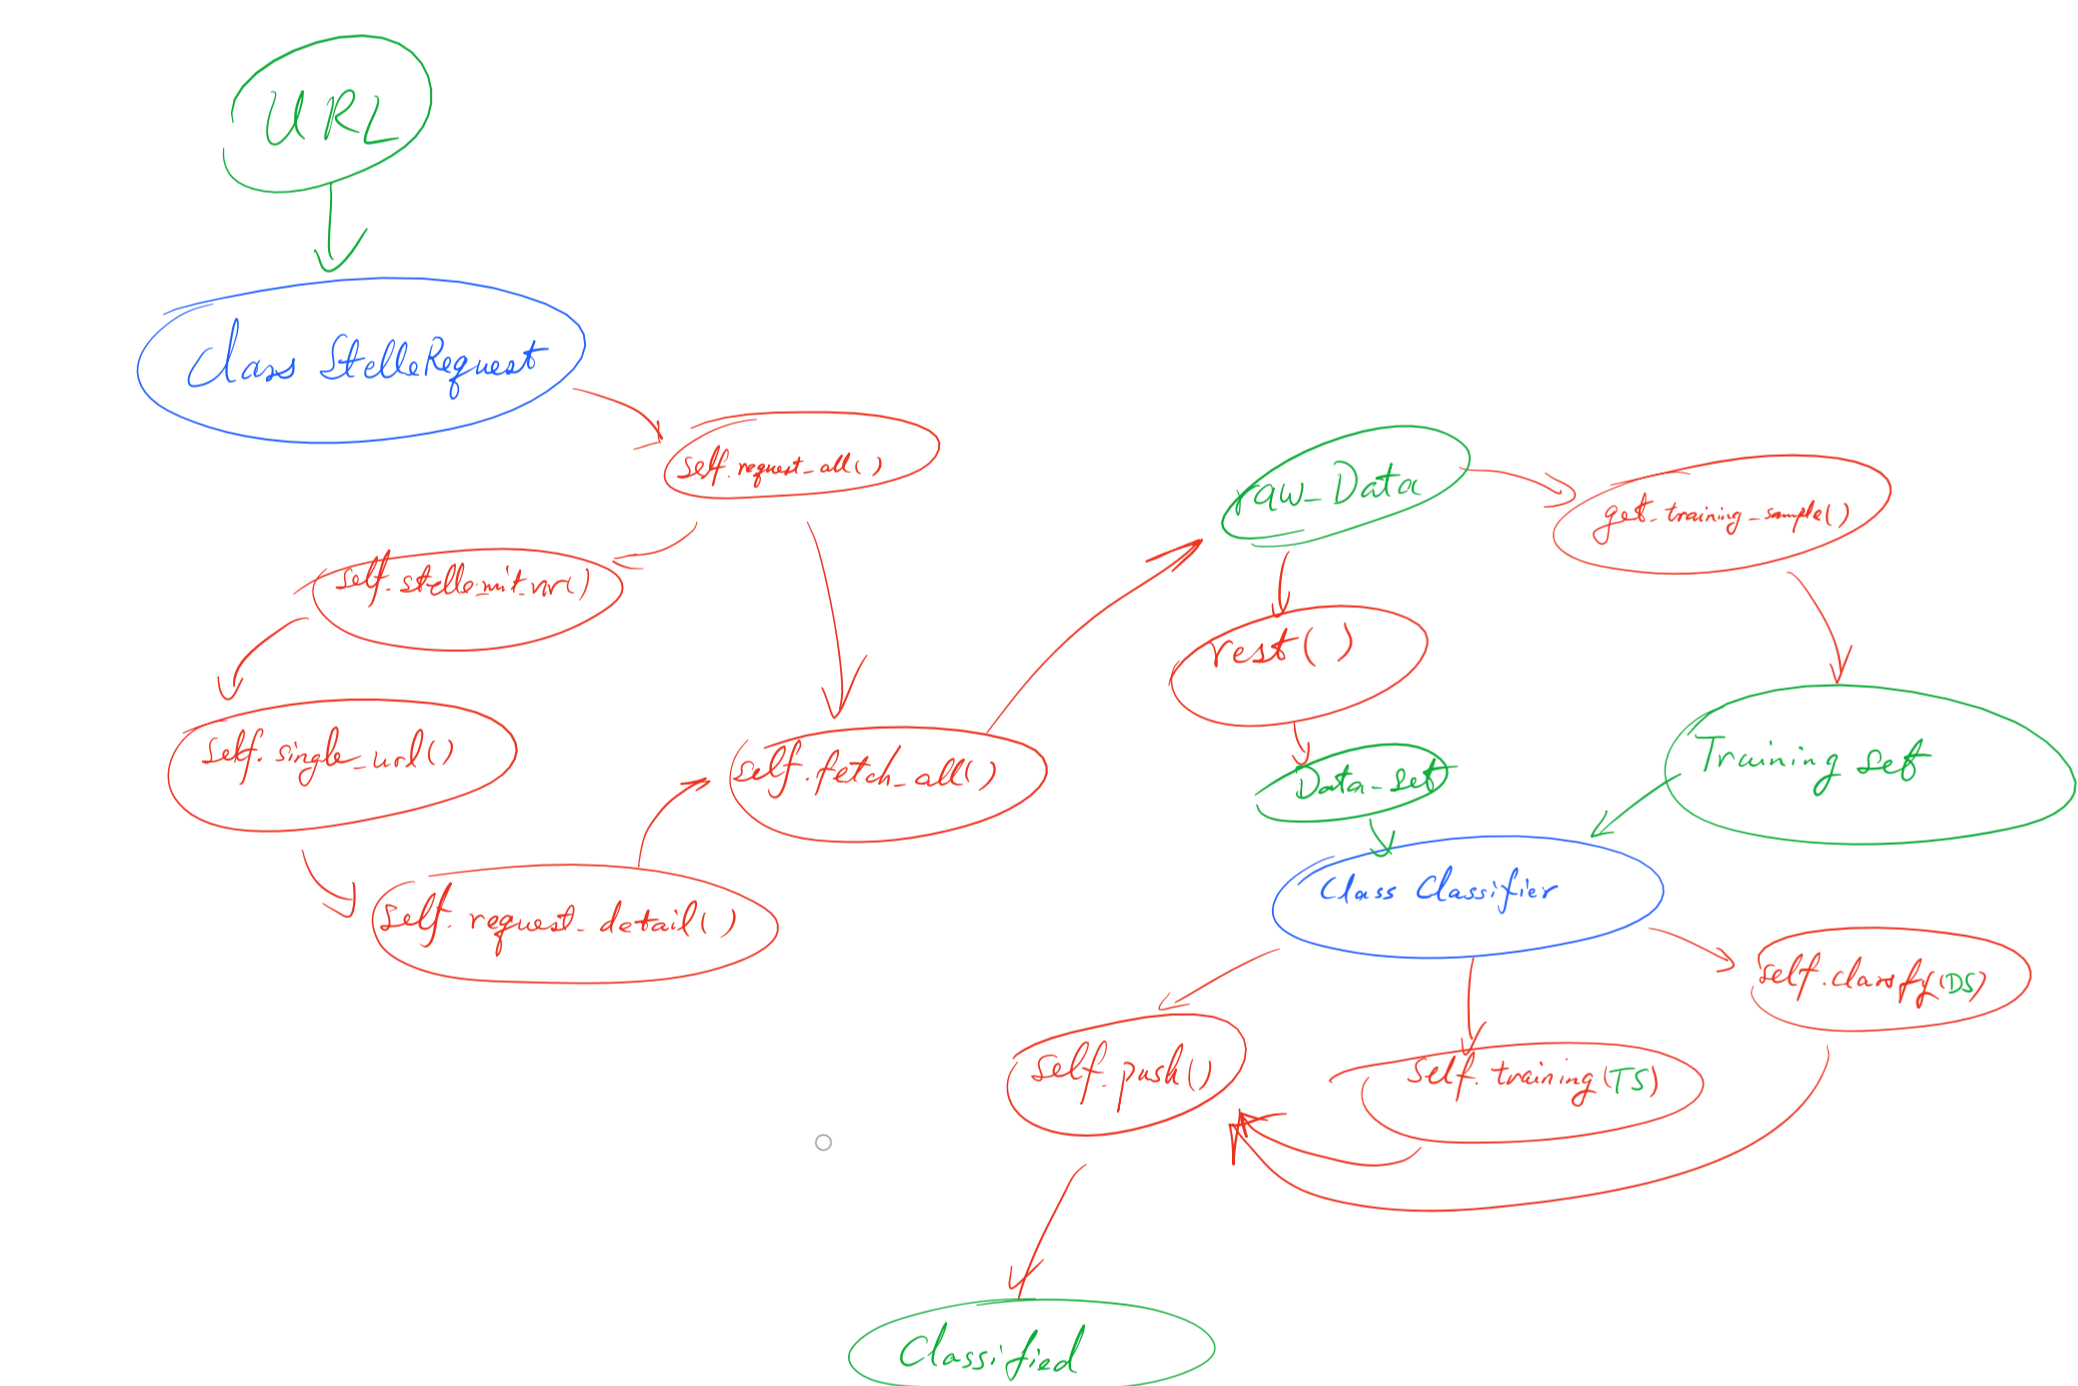 URL
Class StelleRequest
self.request_all()
self.stelle_mit_nr()
self.single_url()
self.request_detail()
self.fetch_all()
raw_Data
get_training_sample()
rest()
Data_set
Training set
Class Classifier
self.classfy(DS)
self.training(TS)
self.push()
Classified